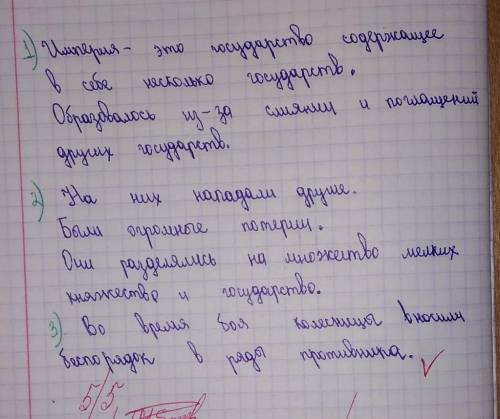 1) Империя - это государство содержащее
в себе несколько государств.
Образовалось из-за слиянии и поглащений
других государств.
2) На них нападали другие.
Были огромные потерии.
Они разделялись на множество мелких
княжества и государство.
3) Во время боя колесницы вносили
беспорядок в ряды противника.
5/5